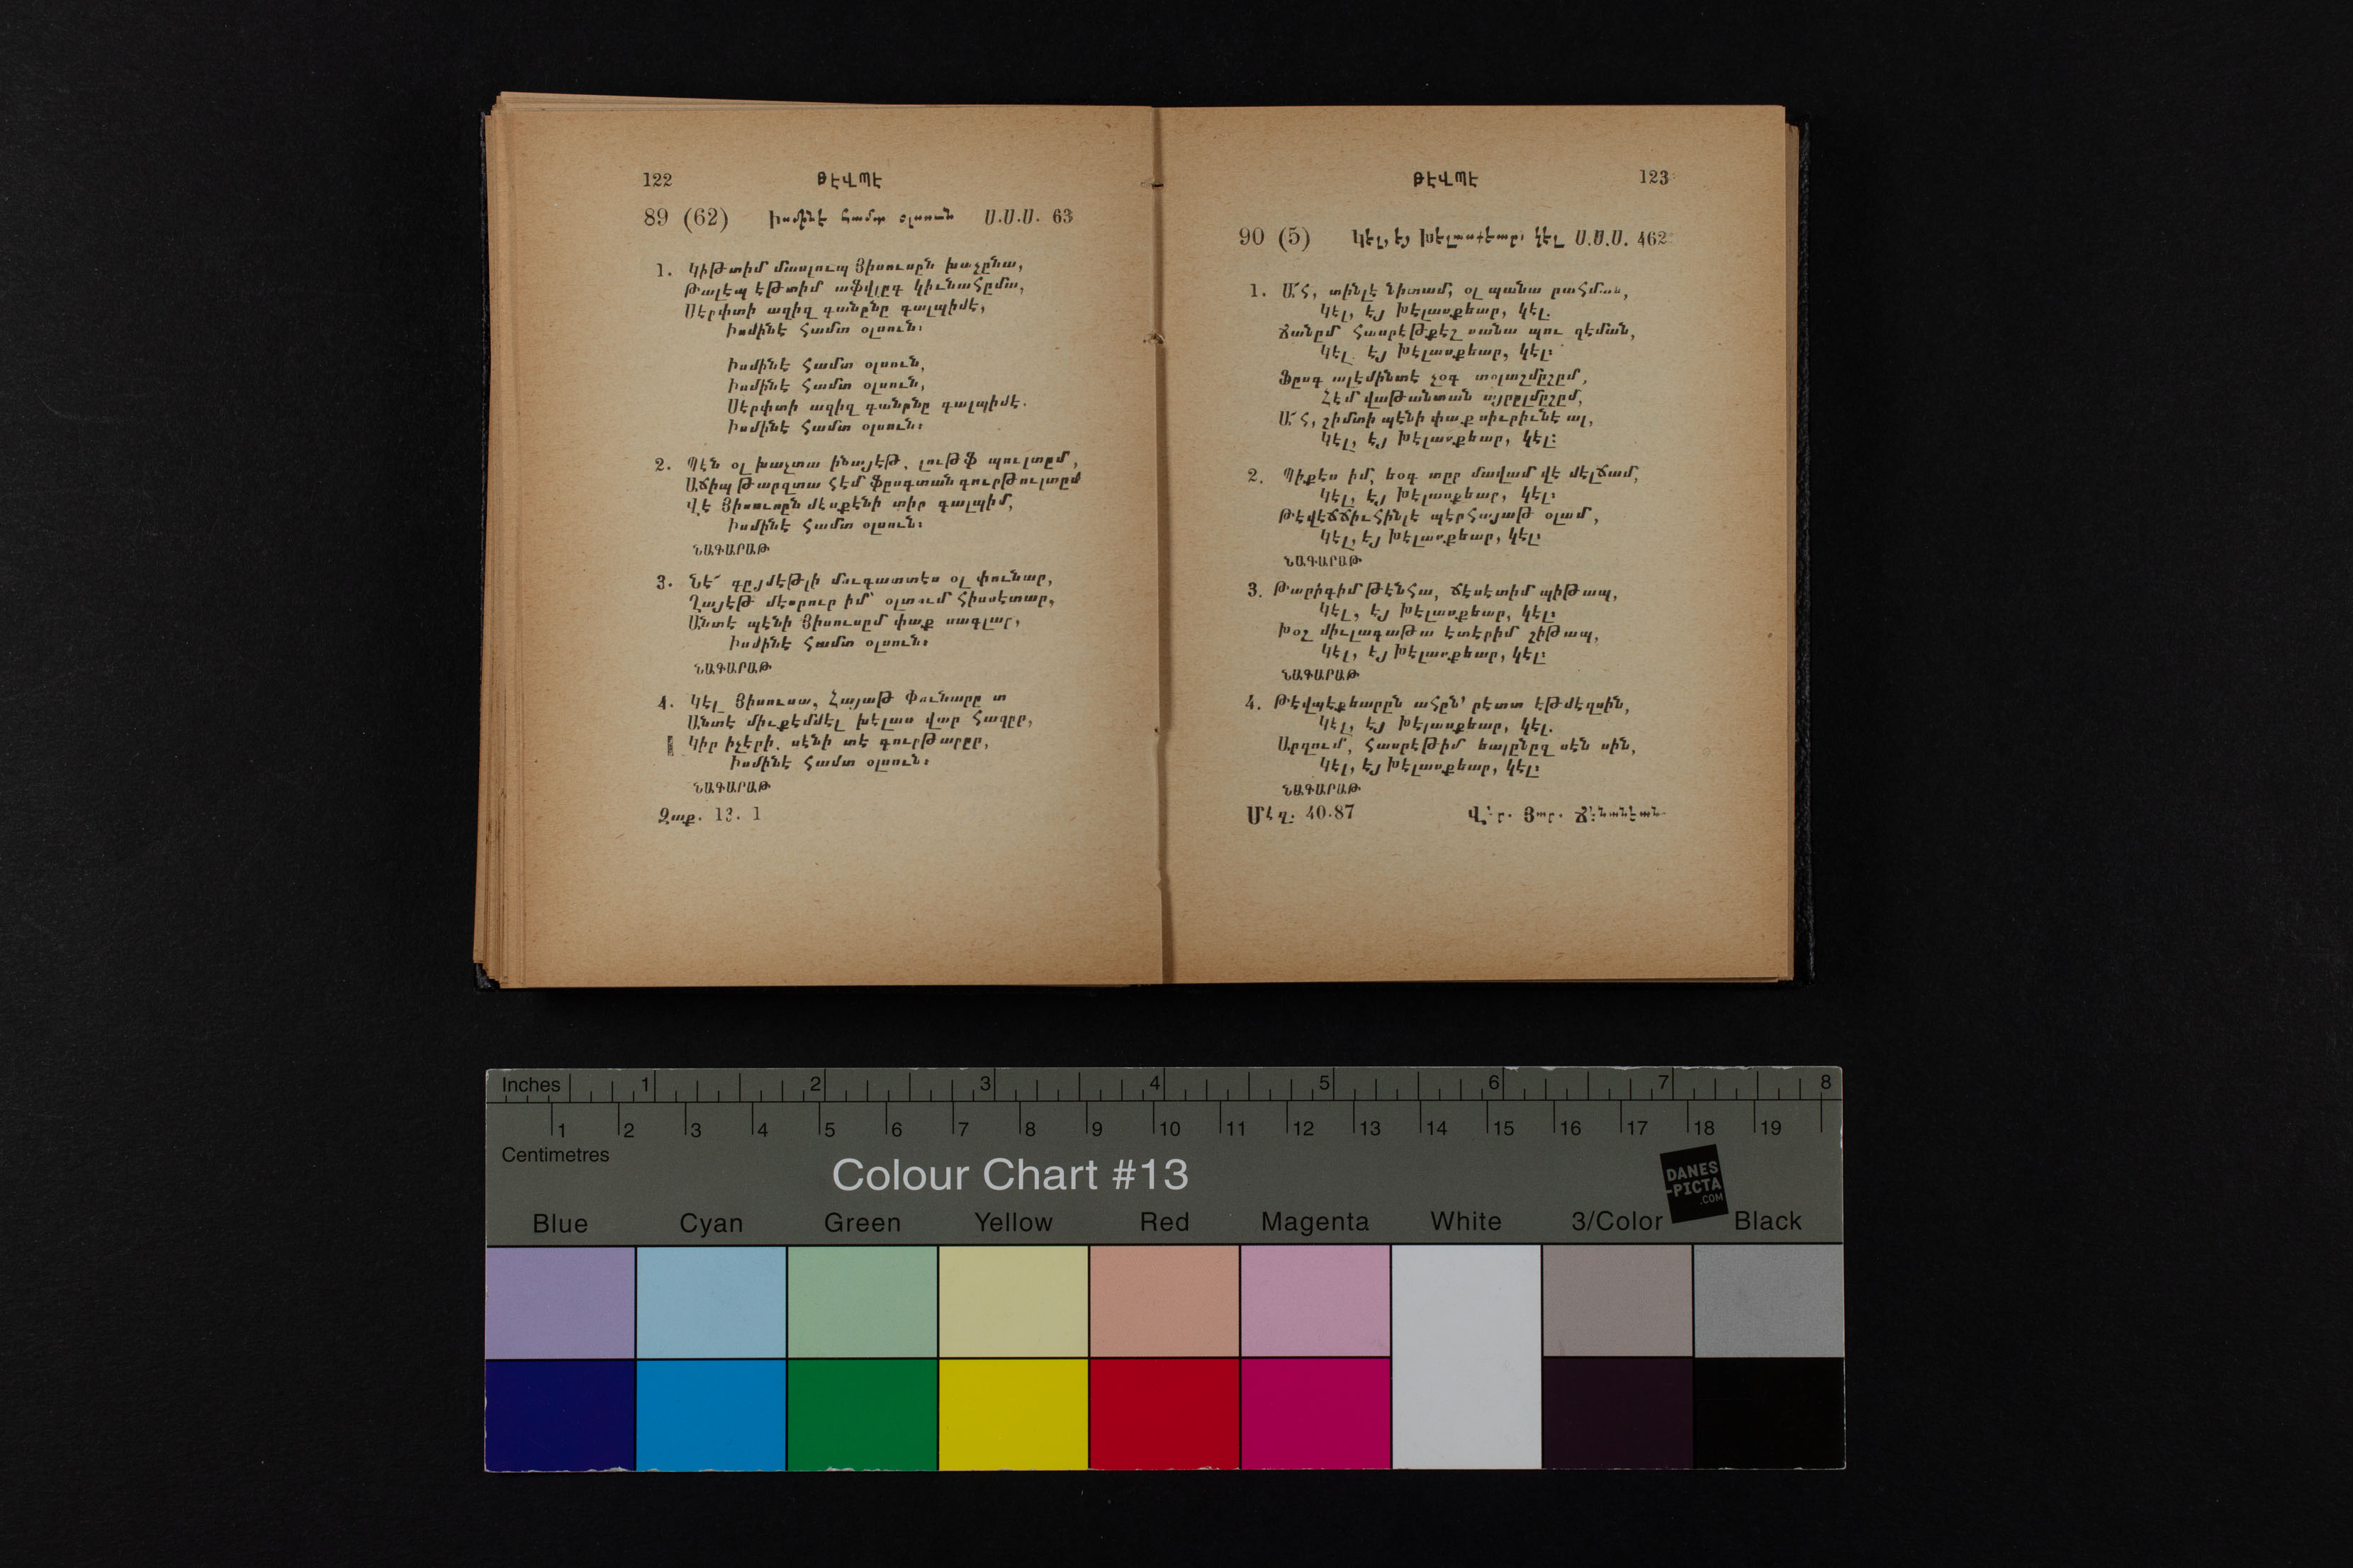 122 ԹԷՎՊԷ
89 (62) Իսմինէ Համտ օլսուն Ս.Ս.Ս. 63
1. Կիթտիմ մասլուպ Յիսուսըն խաչընա,
Թալէպ էթտիմ աֆվլըգ կիւնահըմա,
Սէրփտի ազիզ գանընը գալպիմէ,
Իսմինէ Համտ օլսուն։
Իսմինէ Համտ օլսուն,
Իսմինէ Համտ օլսուն,
Սէրփտի ազիզ գանընը գալպիմէ.
Իսմինէ Համտ օլսուն։
2. Պէն օլ խաչտա ինայէթ, լութֆ պուլտըմ,
Աճիպ թարզտա հէմ ֆըսգտան գուրթուլտըմ
Վէ Յիսուսըն մէսքէնի տիր գալպիմ,
Իսմինէ Համտ օլսուն։
ՆԱԳԱՐԱԹ
3. Նէ՜ գըյմէթլի մուգատտէս օլ փունար,
Ղայէթ մէսրուր իմ՝ օլտում հիսսէտար,
Անտէ պէնի Յիսուսըմ փաք սագլար,
Իսմինէ Համտ օլսուն։
ՆԱԳԱՐԱԹ
4. Կել Յիսուսա, Հայաթ Փունարը տ
Անտէ միւքէմմէլ խէլաս վար Հազըր,
Կիր իչէրի. սէնի տէ գուրթարըր,
Իսմինէ Համտ օլսուն։
ՆԱԳԱՐԱԹ
Զաք. 13. 1
ԹԷՎՊԷ 123
90 (5) Կէլ, էյ Խէլասքեար, կէլ Ս.Ս.Ս. 462
1. Ա՜Հ, տինլէ նիտամ, օլ պանա
Կէլ, էյ Խէլասքեար, կէլ.
Ճանըմ հասրէթքէշ սանա պու զէման,
Կէլ, էյ Խէլասքեար, կէլ։
Ֆըսգ ալէմինտէ չօգ տօլաշմըշըմ,
Հէմ վաթանտան այրըլմըշըմ,
Ա՜Հ, շիմտի պէնի փաք սիւրիւնէ ալ,
Կէլ, էյ Խէլասքեար, կէլ։
2. Պիքէս իմ, եօգ տըր մավամ վէ մէլճամ,
Կէլ, էյ Խէլասքեար, կէլ։
Թէվէճճիւհինլէ պէրհայաթ օլամ,
Կէլ, էյ Խէլասքեար, կէլ։
ՆԱԳԱՐԱԹ
3. Թարիգիմ թէնհա, ճէսէտիմ պիթապ,
Կէլ, էյ Խէլասքեար, կէլ։
Խօշ միւլագաթա էտէրիմ շիթապ,
Կէլ, էյ Խէլասքեար, կէլ։
ՆԱԳԱՐԱԹ
4. Թէվպէքեարըն ահըն՝ րէտտ էթմէզսին,
Կէլ, էյ Խէլասքեար, կէլ.
Արզում, հասրէթիմ եալընըզ սէն սին,
Կէլ, էյ Խէլասքեար, կէլ։
ՆԱԳԱՐԱԹ
Մէզ. 40.87 Վ՟եր. Յար. Ճէնանեան
Inches 1 2 3 4 5 6 7 8
1 2 3 4 5 6 7 8 9 10 11 12 13 14 15 16 17 18 19
Centimetres
Colour Chart #13
DANES
-PICTA
.COM
Blue Cyan Green Yellow Red Magenta White 3/Color Black